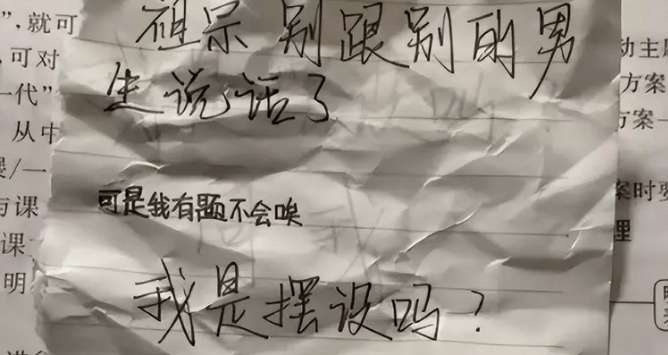 祖宗 别跟别的男
生说话了
可是我有题不会唉
我是摆设吗？
”，就可
，可对
一代”
从中
与课
课
明
动主题
方案
方案一
案时要
理